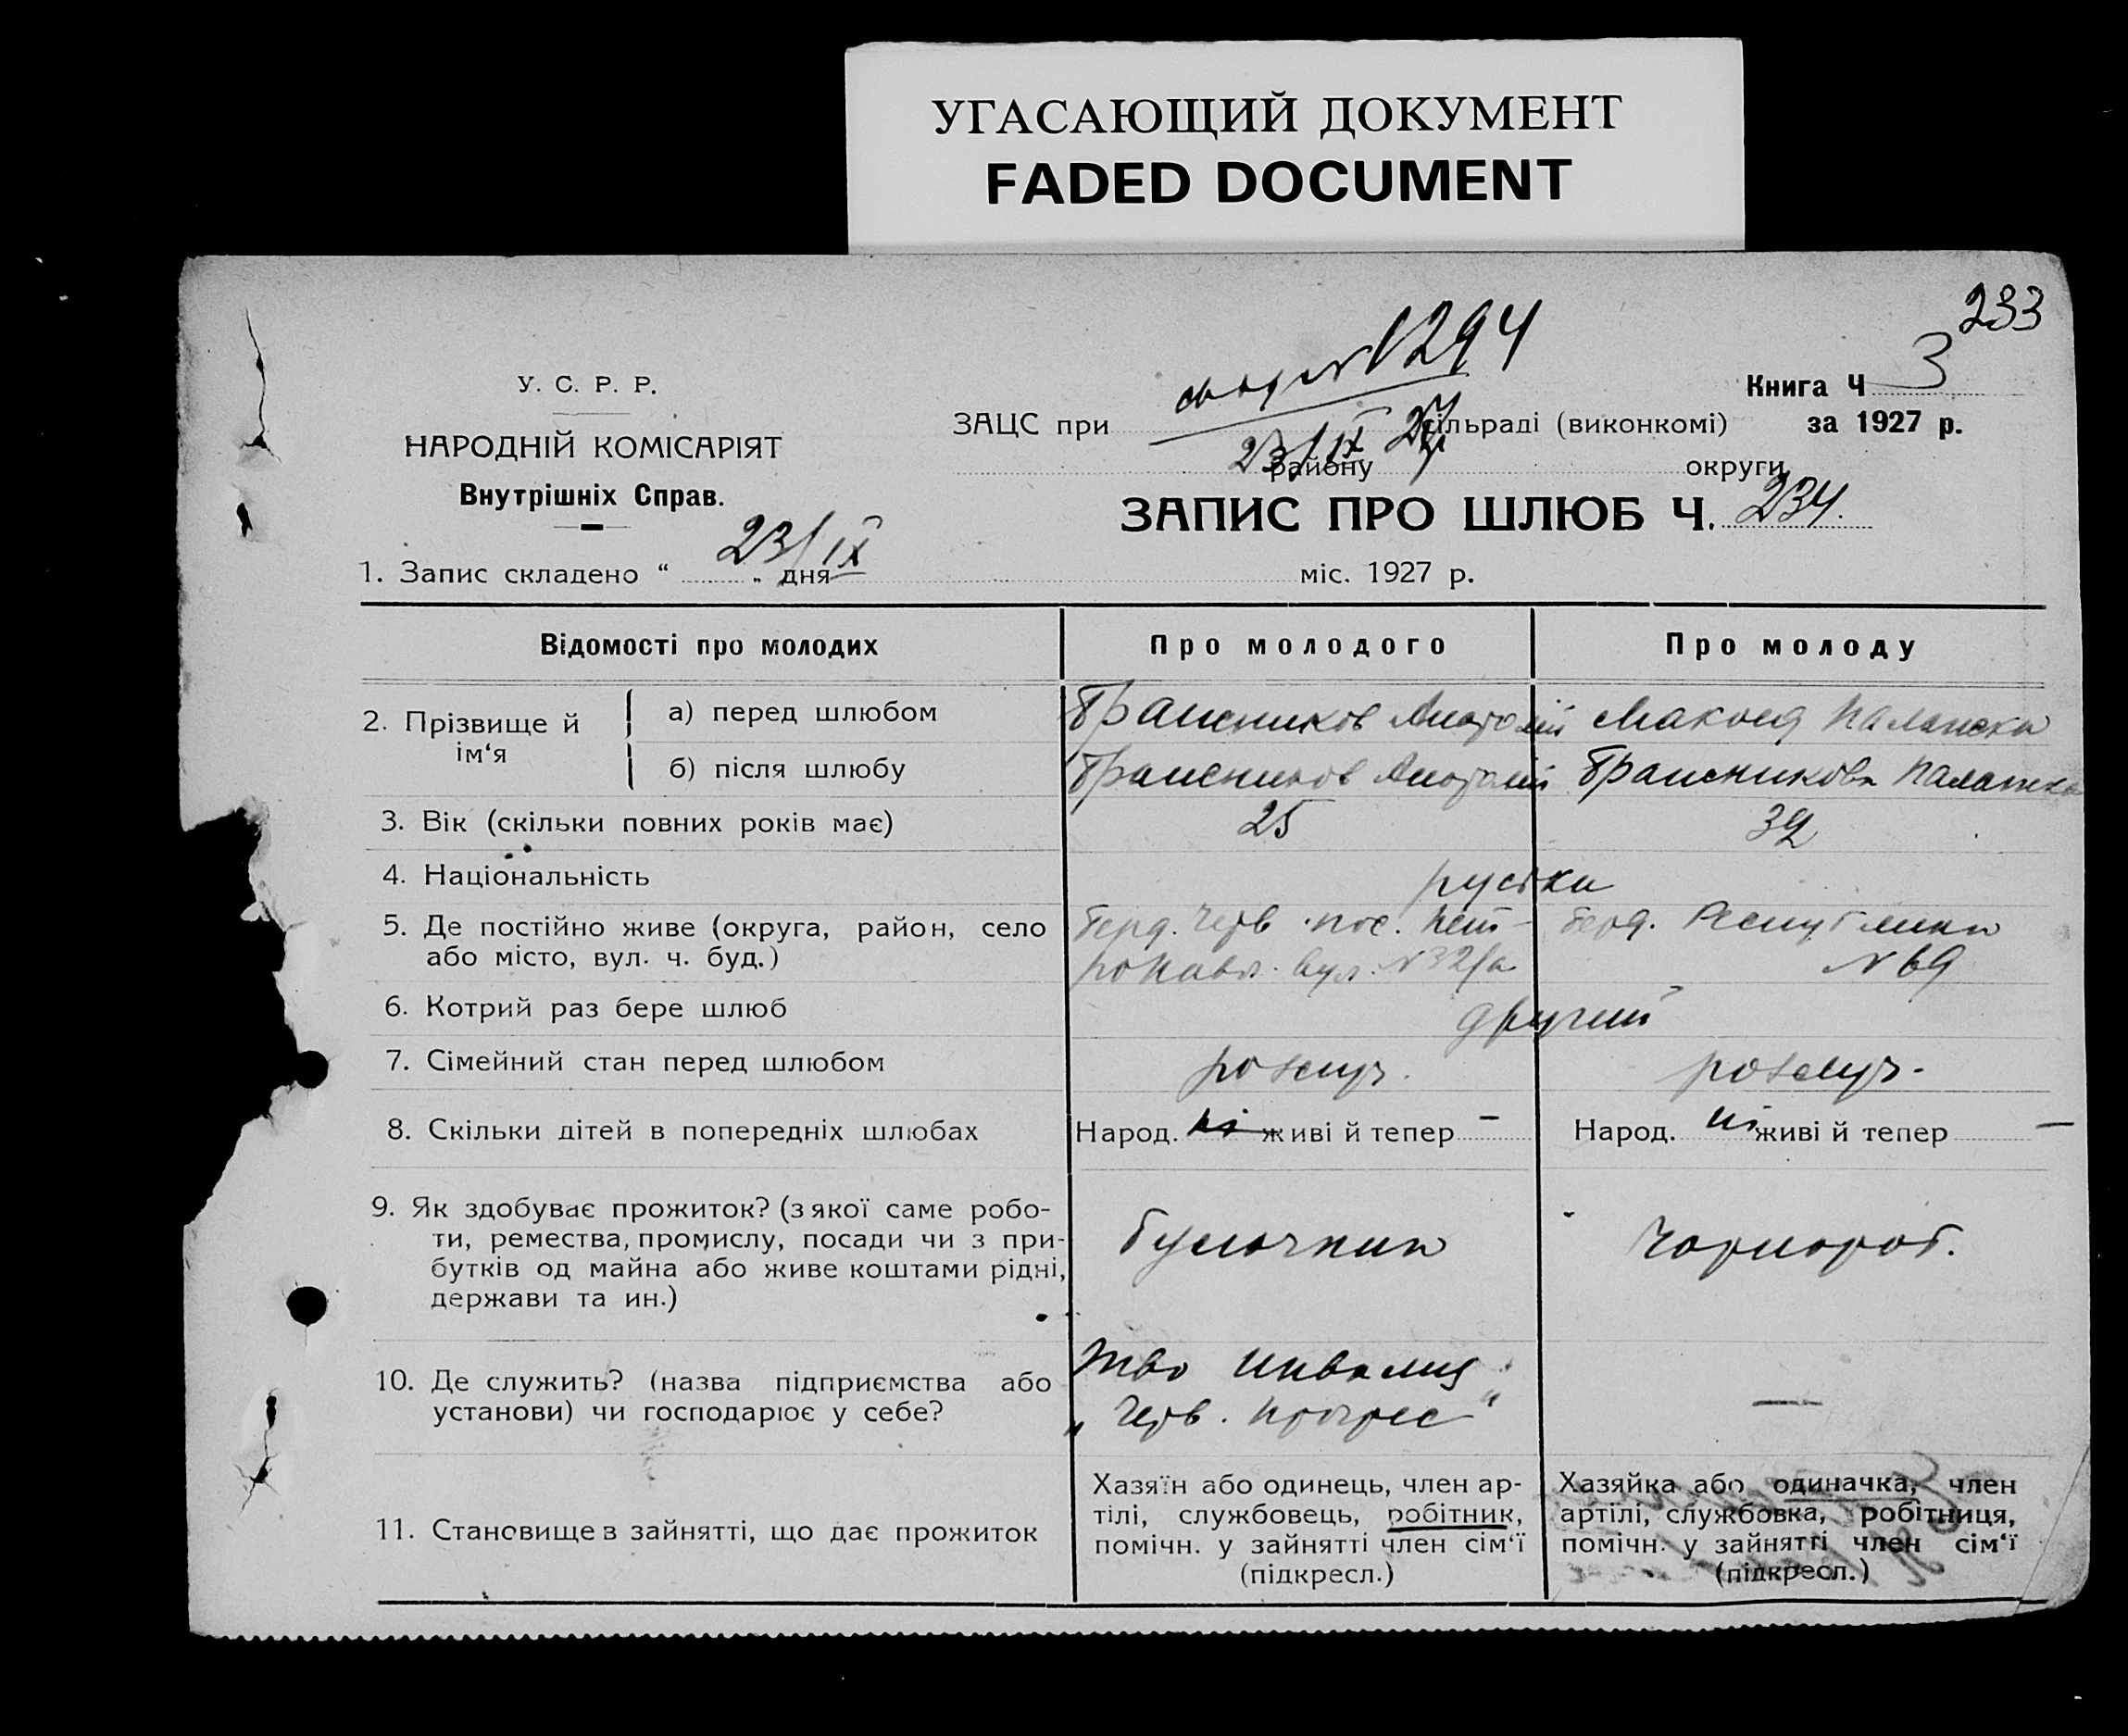 УГАСАЮЩИЙ ДОКУМЕНТ
FADED DOCUMENT
233
N 1294
У. С. Р. Р.
Книга Ч 3
НАРОДНІЙ КОМІСАРІЯТ
ЗАЦС при сільраді (виконкомі)
за 1927 р.
23/IX 27
району округи
Внутрішніх Справ.
ЗАПИС ПРО ШЛЮБ Ч. 234.
1. Запис складено “ 23/IX „ дня міс. 1927 р.
Відомості про молодих
Про молодого
Про молоду
2. Прізвище й ім‘я
а) перед шлюбом
Анатолій
б) після шлюбу
Анатолій
3. Вік (скільки повних років має)
25
32
4. Національність
руські
5. Де постійно живе (округа, район, село
або місто, вул. ч. буд.)
Берд. Черв. пос. Пет-
ропавл. вул. N 32/а
Берд. Республики
N 69
6. Котрий раз бере шлюб
другий
7. Сімейний стан перед шлюбом
розлуч.
розлуч.
8. Скільки дітей в попередніх шлюбах
Народ. ні живі й тепер –
Народ. ні живі й тепер –
9. Як здобуває прожиток? (з якої саме робо-
ти, ремества, промислу, посади чи з при-
бутків од майна або живе коштами рідні,
держави та ин.)
булочник
Чорнороб.
10. Де служить? (назва підприємства або
установи) чи господарює у себе?
Т-во инвалид
„Черв. прогрес“
—
11. Становище в зайнятті, що дає прожиток
Хазяїн або одинець, член ар-
тілі, службовець, робітник,
помічн. у зайнятті член сім‘ї
(підкресл.)
Хазяйка або одиначка, член
артілі, службовка, робітниця,
помічн. у зайнятті член сім‘ї
(підкресл.)